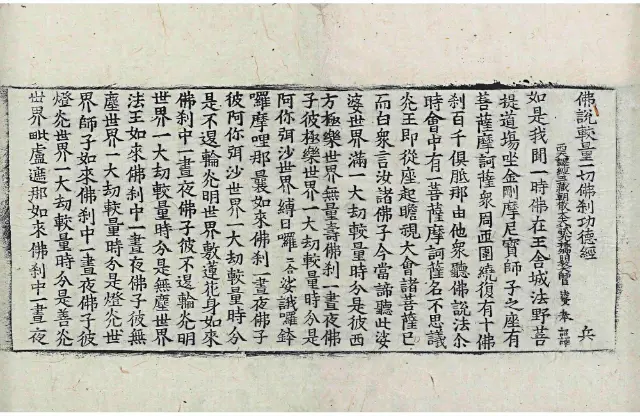 佛說較量一切佛刹功德經 兵
奉 詔譯
如是我聞一時佛在王舍城法野菩
提道場坐金剛摩尼寶師子之座有
菩薩摩訶薩衆周匝圍繞復有十佛
刹百千俱胝那由他衆聽佛說法尒
時會中有一菩薩摩訶薩名不思議
光王即從座起瞻視大會諸菩薩已
而白衆言汝諸佛子今當諦聽此娑
婆世界滿一大劫較量時分是彼西
方極樂世界無量壽佛刹一晝夜佛
子彼極樂世界一大劫較量時分是
阿你弭沙世界縛日囉二合娑誐囉鉢
囉摩哩那曩如來佛刹一晝夜佛子
彼阿你弭沙世界一大劫較量時分
是不退輪光明世界敷蓮花身如來
佛刹中一晝夜佛子彼不退輪光明
世界一大劫較量時分是無塵世界
法王如來佛刹中一晝夜佛子彼無
塵世界一大劫較量時分是燈光世
界師子如來佛刹中一晝夜佛子彼
燈光世界一大劫較量時分是善光
世界毗盧遮那如來佛刹中一晝夜